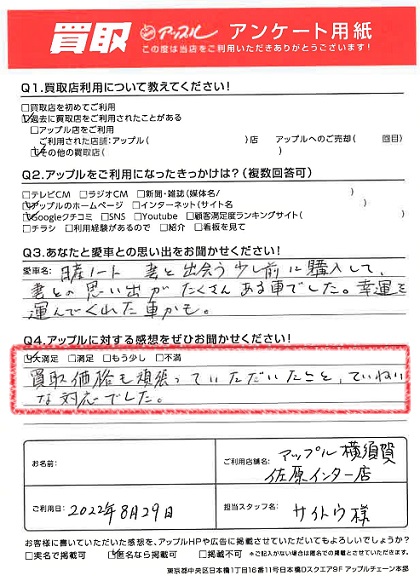 買取 アップル アンケート用紙
この度は当店をご利用いただきありがとうございます!
Q1.買取店利用について教えてください!
□買取を初めてご利用
☑過去に買取店をご利用されたことがある
□アップル店をご利用
ご利用された店舗:アップル( )店 アップルへのご売却( 回目)
☑その他の買取店( )
Q2.アップルをご利用になったきっかけは?(複数回答可)
□テレビCM □ラジオCM □新聞・雑誌(媒体名/ )
☑アップルのホームページ □インターネット(サイト名 )
☑Googleクチコミ □SNS □Youtube □顧客満足度ランキングサイト( )
□チラシ □利用経験があるので □紹介 □看板を見て
Q3.あなたと愛車との思い出をお聞かせください!
愛車名: 日産ノート 妻と出会う少し前に購入して、
妻との思い出がたくさんある車でした。幸運を
運んでくれた車かも。
Q4.アップルに対する感想をぜひお聞かせください!
☑大満足 □満足 □もう少し □不満
買取価格も頑張っていただいたこと、ていねい
な対応でした。
お名前:
ご利用店舗名: アップル横須賀
佐原インター店
ご利用日: 2022年8月29日
担当スタッフ名: サイトウ様
お客様に書いていただいた感想を、アップルHPや広告に掲載させていただいてもよろしいでしょうか?
□実名で掲載可 ☑匿名なら掲載可 □掲載不可 ※ご記入がない場合は匿名での掲載とさせていただきます。
東京都中央区日本橋1丁目16番11号日本橋Dスクエア9F アップルチェーン本部